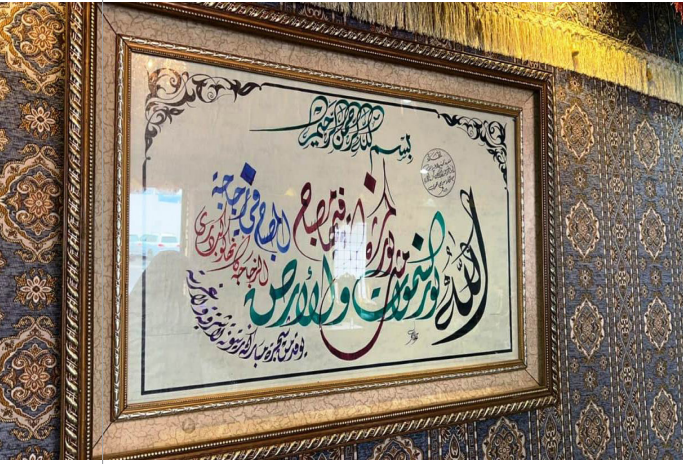 بسم الله الرحمن الرحيم
الله نور السموات والأرض
مثل نوره كمشكاة فيها مصباح
المصباح في زجاجة
الزجاجة كأنها كوكب دري
يوقد من شجرة مباركة زيتونة لا شرقية ولا غربية